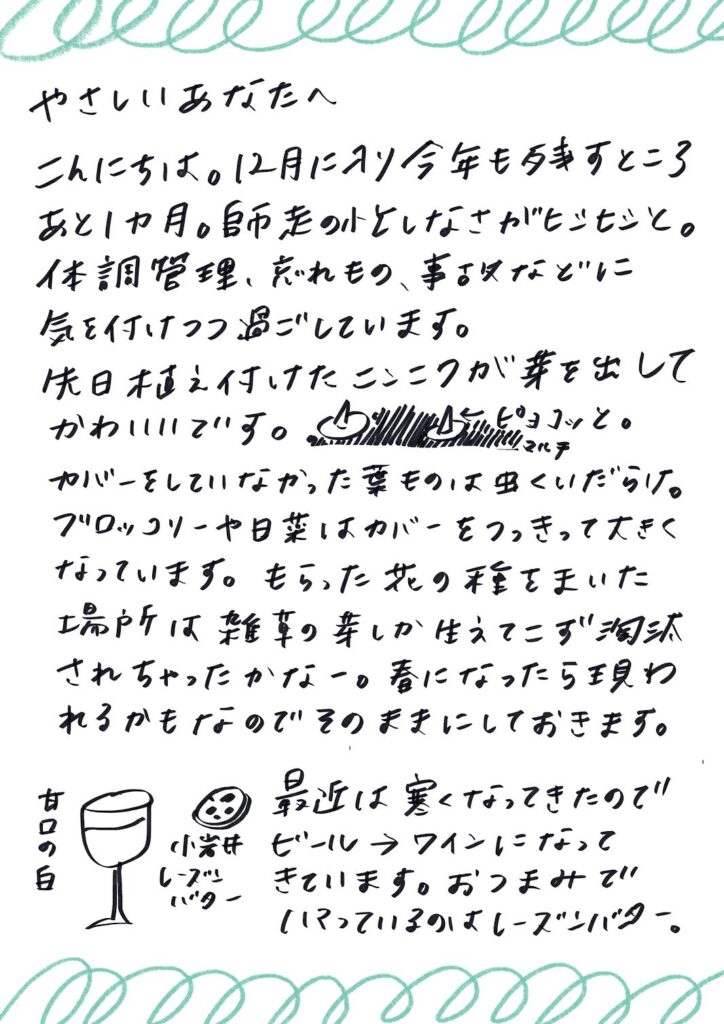 やさしいあなたへ
こんにちは。12月に入り今年も残すところ
あと1カ月。師走の忙しなさがヒシヒシと。
体調管理、忘れもの、事故などに
気を付けつつ過ごしています。
先日植え付けたニンニクが芽を出して
かわいいです。
←ピョコッと。
マルチ
カバーをしていなかった葉ものは虫くいだらけ。
ブロッコリーや白菜はカバーをつっきって大きく
なっています。もらった花の種をまいた
場所は雑草の芽しか生えてこず淘汰
されちゃったかなー。春になったら現わ
れるかもなのでそのままにしておきます。
甘口の白
小岩井
レーズン
バター
最近は寒くなってきたので
ビール→ワインになって
きています。おつまみで
ハマっているのはレーズンバター。